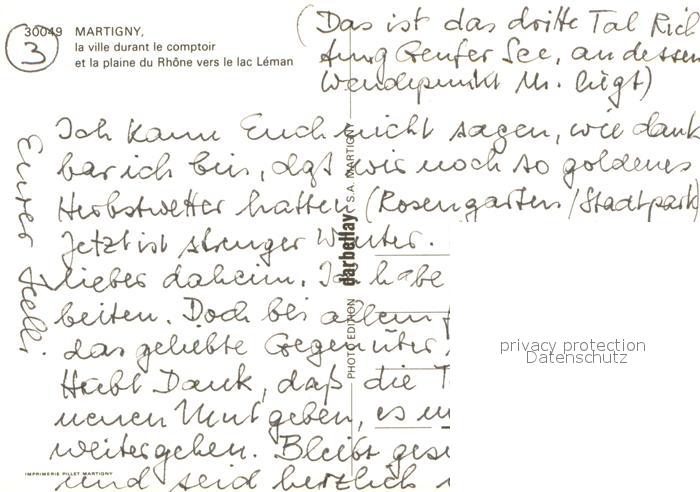 30049 MARTIGNY,
la ville durant le comptoir
et la plaine du Rhône vers le lac Léman
3
(Das ist das dritte Tal Rich
tung Genfer See, an dessen
Wendepunkt M. liegt)
Ich kann Euch nicht sagen, wie dank
bar ich bin, daß wir noch so goldenes
Herbstwetter hatten (Rosengarten/Stadtpark)
Jetzt ist strenger Winter.
lieber daheim. Ich habe
beiten. Doch bei allem
das geliebte Gegenüber,
Habt Dank, daß die T
neuen Mut geben, es m
weitergehen. Bleibt ges
und seid herzlich
Eurer
PHOTO EDITION darbellay S.A. MARTIGNY
IMPRIMERIE PILLET MARTIGNY
privacy protection
Datenschutz